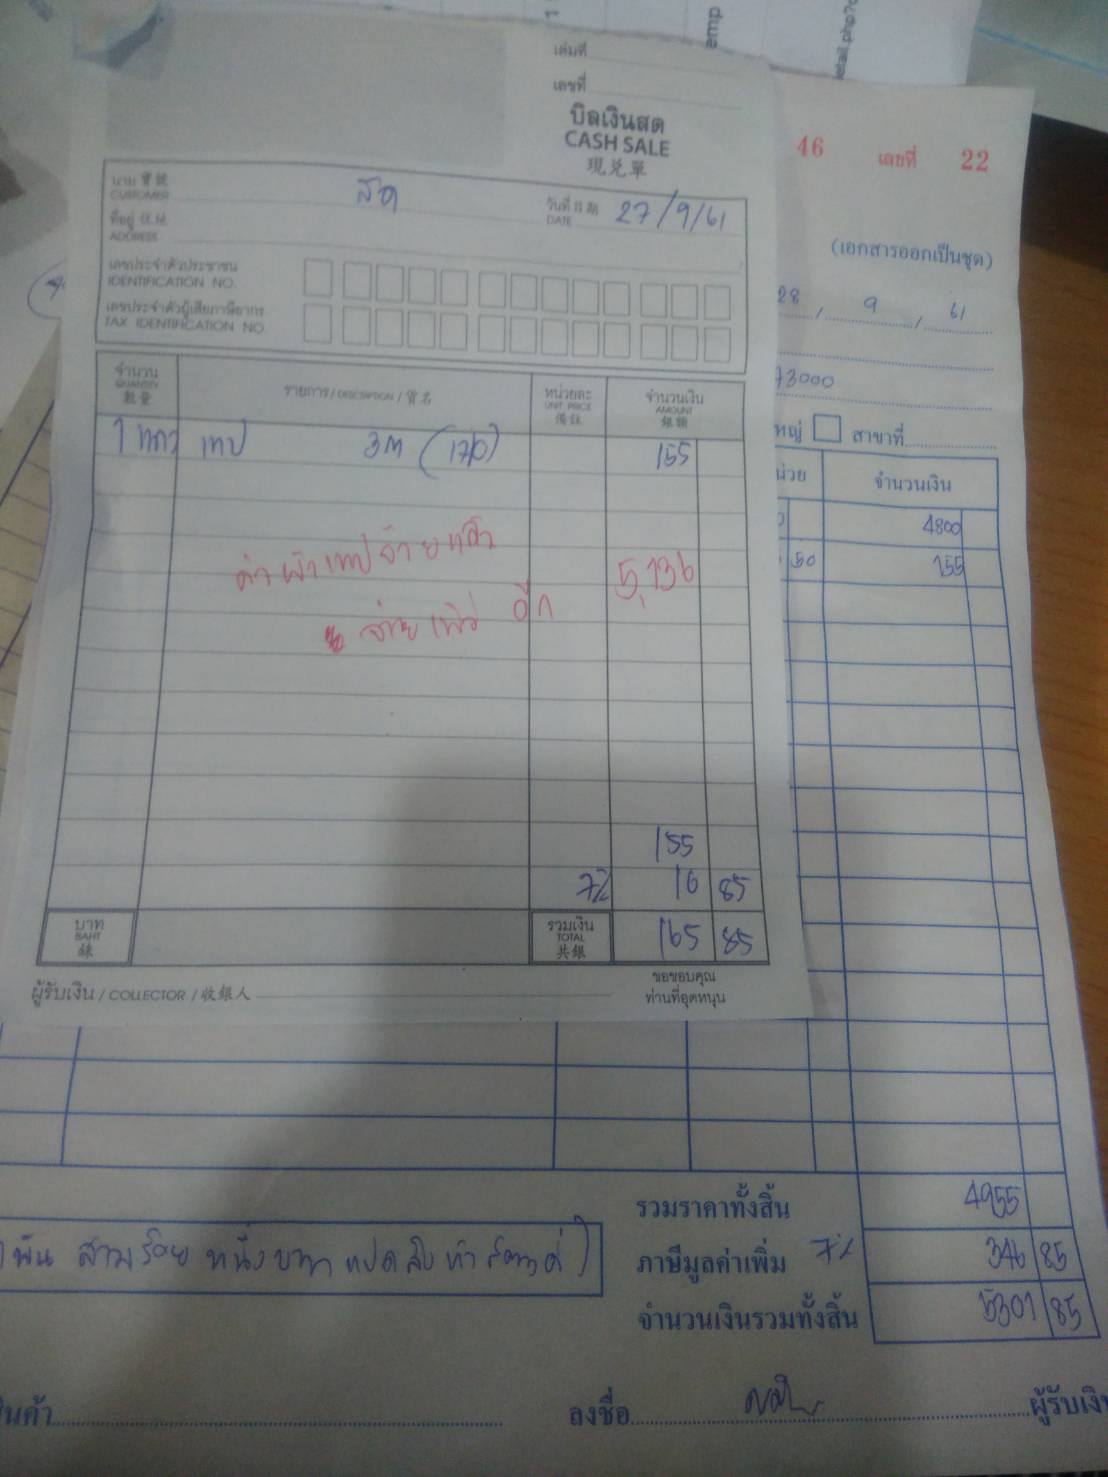 เล่มที่
เลขที่
บิลเงินสด
CASH SALE
現兌單
นาม 寶號
CUSTOMER
สด
วันที่ 日期
DATE
27/9/61
ที่อยู่ 住址
ADDRESS
เลขประจำตัวประชาชน
IDENTIFICATION NO.
เลขประจำตัวผู้เสียภาษีอากร
TAX IDENTIFICATION NO.
จำนวน
QUANTITY
數量
รายการ / DESCRIPTION / 貨名
หน่วยละ
UNIT PRICE
備註
จำนวนเงิน
AMOUNT
銀額
1 เทป 3m 155
ค่าผ้าเทปจ่ายแล้ว 5,136
จ่ายเพิ่ม อีก
155
7% 10 85
บาท
BAHT
銖
รวมเงิน
TOTAL
共銀
165 85
ผู้รับเงิน / COLLECTOR / 收銀人
ขอขอบคุณ
ท่านที่อุดหนุน
46 เลขที่ 22
(เอกสารออกเป็นชุด)
28 / 9 / 61
73000
หญ่ สาขาที่
น่วย จำนวนเงิน
4800
50 155
รวมราคาทั้งสิ้น 4955
ภาษีมูลค่าเพิ่ม 7% 346 85
จำนวนเงินรวมทั้งสิ้น 5301 85
พัน สามร้อย หนึ่งบาท แปดสิบห้าสตางค์)
ินค้า
ลงชื่อ
ผู้รับเงิน
emp
etail.php?